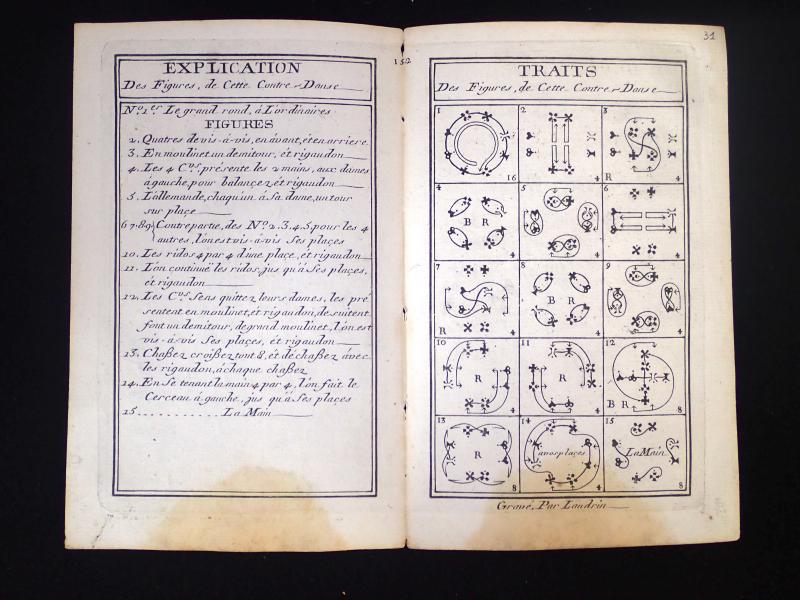 EXPLICATION
Des Figures, de Cette Contre-Danse
N.o 1.er Le grand rond, à L'ordinaires
FIGURES
2. Quatres de vis-à-vis, en avant, ét en arriere
3. En moulinet un demitour, ét rigaudon
4. Les 4 C.rs présente les 2 mains, aux dames
à gauche, pour balançez ét rigaudon
5. L'allemande, chaqu'un à sa dame, un tour
sur plaçe
6 7. 8 9 Contre partie, des N.o 2. 3. 4. 5 pour les 4
autres, l'on est vis-à-vis ses plaçes
10. Les ridos 4 par 4 d'une plaçe, et rigaudon
11. L'on çontinuë les ridos, jus qu'à ses plaçes,
ét rigaudon
12. Les C.rs s'ens quittez leurs dames, les pré
sentent en moulinet, et rigaudon, de suitent
font un demitour, de grand moulinet, l'on est
vis-à-vis ses plaçes, et rigaudon
13. Chaßez croißez tout 8, ét déchaßez avec
les rigaudon, à chaque chaßez
14. En se tenant la main 4 par 4, l'on fait le
Cerceau à gauche, jus qu'à ses plaçes
15 ........... La Main
152
31
TRAITS
Des Figures, de Cette Contre-Danse
1
16
2
4
3
R
4
4
B R
4
5
4
6
4
7
R
4
8
B R
4
9
4
10
R
4
11
R
4
12
B R
8
13
R
8
14
a vos plaçes
4
15
La Main
8
Gravé, Par Landrin